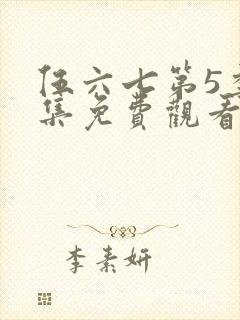 伍六七第5季
集免費觀看
李素妍